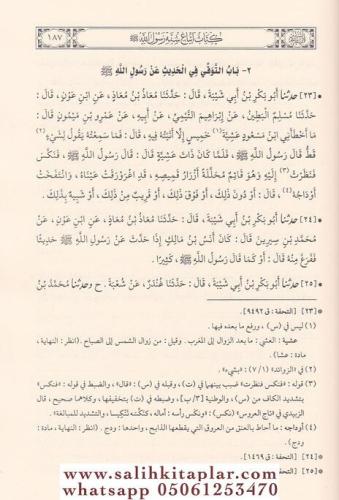 كتاب اتباع سنة رسول الله ﷺ
١٨٧
٢- بَابُ التَّوَقِّي فِي الْحَدِيثِ عَنْ رَسُولِ اللهِ ﷺ
• [٢٣] حدثنا أَبُو بَكْرِ بْنُ أَبِي شَيْبَةَ، قَالَ: حَدَّثَنَا مُعَاذُ بْنُ مُعَاذٍ، عَنِ ابْنِ عَوْنٍ، قَالَ:
حَدَّثَنَا مُسْلِمٌ الْبَطِينُ، عَنْ إِبْرَاهِيمَ التَّيْمِيِّ، عَنْ أَبِيهِ، عَنْ عَمْرِو بْنِ مَيْمُونٍ قَالَ:
مَا أَخْطَأَنِي ابْنُ مَسْعُودٍ عَشِيَّةَ(١) خَمِيسٍ إِلَّا أَتَيْتُهُ فِيهِ، قَالَ: فَمَا سَمِعْتُهُ يَقُولُ لِشَيْءٍ(٢)
قَطُّ قَالَ رَسُولُ اللهِ ﷺ، فَلَمَّا كَانَ ذَاتَ عَشِيَّةٍ قَالَ: قَالَ رَسُولُ اللهِ ﷺ، فَنَكَسَ
فَنَظَرْتُ(٣) إِلَيْهِ وَهُوَ قَائِمٌ مُحَلَّلَةً أَزْرَارُ قَمِيصِهِ، قَدِ اغْرَوْرَقَتْ عَيْنَاهُ، وَانْتَفَخَتْ
أَوْدَاجُهُ(٤)، قَالَ: أَوْ دُونَ ذَلِكَ، أَوْ فَوْقَ ذَلِكَ، أَوْ قَرِيبٌ مِنْ ذَلِكَ، أَوْ شَبِيهٌ بِذَلِكَ.
• [٢٤] حدثنا أَبُو بَكْرِ بْنُ أَبِي شَيْبَةَ، قَالَ: حَدَّثَنَا مُعَاذُ بْنُ مُعَاذٍ، عَنِ ابْنِ عَوْنٍ، عَنْ
مُحَمَّدِ بْنِ سِيرِينَ قَالَ: كَانَ أَنَسُ بْنُ مَالِكٍ إِذَا حَدَّثَ عَنْ رَسُولِ اللهِ ﷺ حَدِيثًا
فَفَرَغَ مِنْهُ قَالَ: أَوْ كَمَا قَالَ رَسُولُ اللهِ ﷺ،
• [٢٥] حدثنا أَبُو بَكْرِ بْنُ أَبِي شَيْبَةَ، قَالَ: حَدَّثَنَا غُنْدَرٌ، عَنْ شُعْبَةَ. ح وحدثنا مُحَمَّدُ بْنُ
* [٢٣] [التحفة: ق ٩٤٩٢].
(١) ليس في (س)، ورفع ما بعده فيها.
عشية: العشي: ما بعد الزوال إلى المغرب. وقيل: من زوال الشمس إلى الصباح. (انظر: النهاية،
مادة: عشا).
(٢) في «الزوائد» (١/ ٧): «بشيء».
(٣) قوله: «فنكس فنظرت» ضبب بينهما في (ت)، وقبله في (س): «قال»، والضبط في قوله: «فنكس»
بتشديد الكاف من (س)، والوطنية [٣/ب]، وضبطه في (ت) بتخفيفها، وكلاهما صحيح، قال
الزبيدي في «تاج العروس» (نكس): «ونكس رأسه: أماله، كنكّسه تنكيسا، والتشديد للمبالغة».
(٤) أوداجه: ما أحاط بالعنق من العروق التي يقطعها الذابح، واحدها: ودج. (انظر: النهاية، مادة:
ودج).
* [٢٤] [التحفة: ق ١٤٦٩].
* [٢٥] [التحفة
www.salihkitaplar.com
whatsapp 05061253470